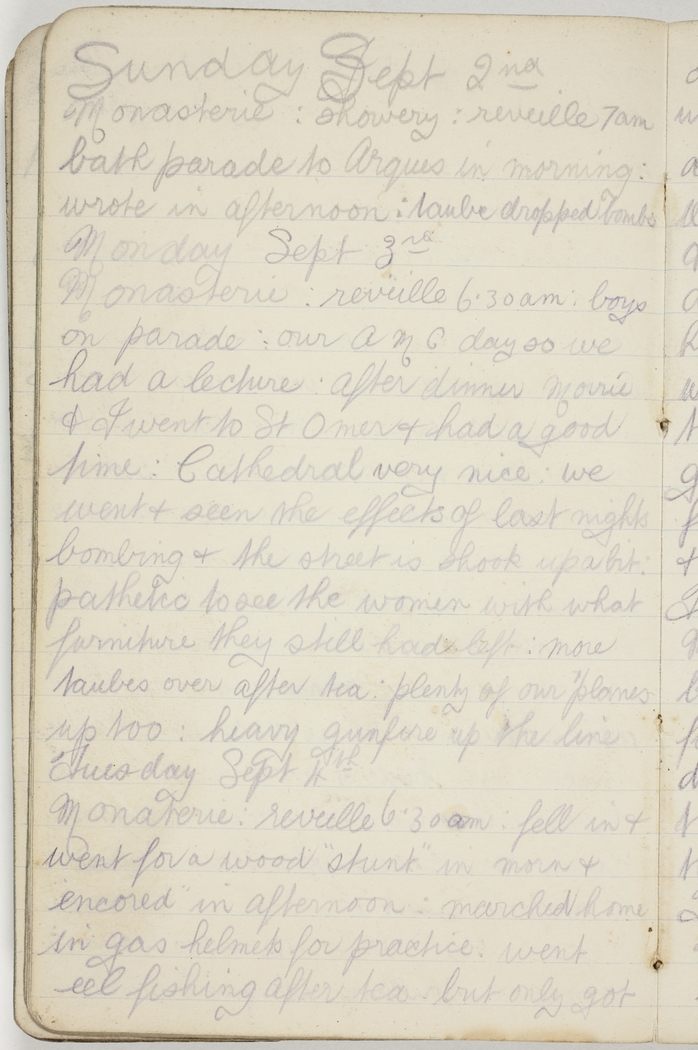 Sunday Sept 2nd
Monasterie : showery : reveille 7am
bath parade to Arques in morning :
wrote in afternoon : taube dropped bombs
Monday Sept 3rd
Monasterie : reveille 6.30am : boys
on parade : our A M C day so we
had a lecture : after dinner Morrie
& I went to St Omer & had a good
time : Cathedral very nice : we
went & seen the effects of last nights
bombing & the street is shook up a bit :
pathetic to see the women with what
furniture they still had left : more
taubes over after tea : plenty of our 'planes
up too : heavy gunfire up the line
Tuesday Sept 4th
Monaterie : reveille 6.30am : fell in &
went for a wood "stunt" in morn &
"encored" in afternoon : marched home
in gas helmets for practice : went
eel fishing after tea but only got